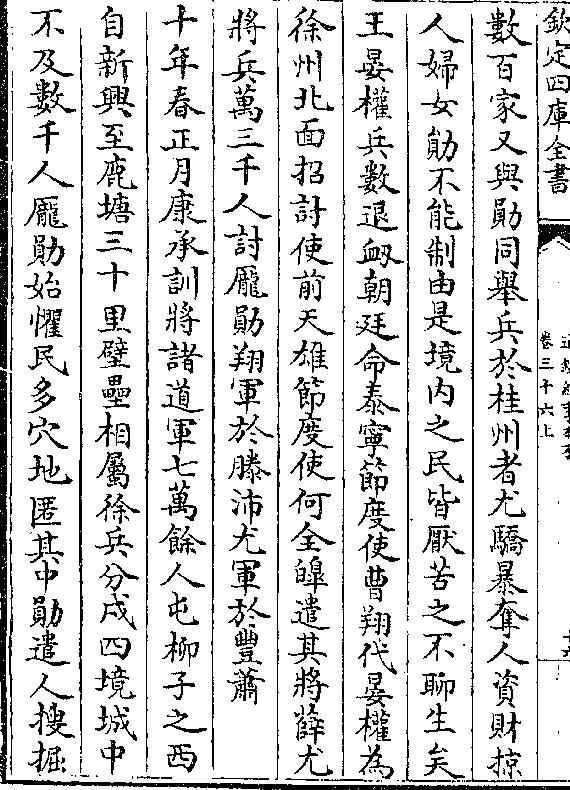 欽定四庫全書
卷三十六上
數百家又與勛同舉兵於桂州者尤驕暴奪人資財掠
人婦女勛不能制由是境内之民皆厭苦之不聊生矣
王晏權兵數退衂朝廷命泰寧節度使曹翔代晏權為
徐州北面招討使前天雄節度使何全皥遣其將薛尤
將兵萬三千人討龐勛翔軍於滕沛尤軍於豐蕭
十年春正月康承訓將諸道軍七萬餘人屯柳子之西
自新興至鹿塘三十里壁壘相屬徐兵分戍四境城中
不及數千人龐勛始懼民多穴地匿其中勛遣人搜掘